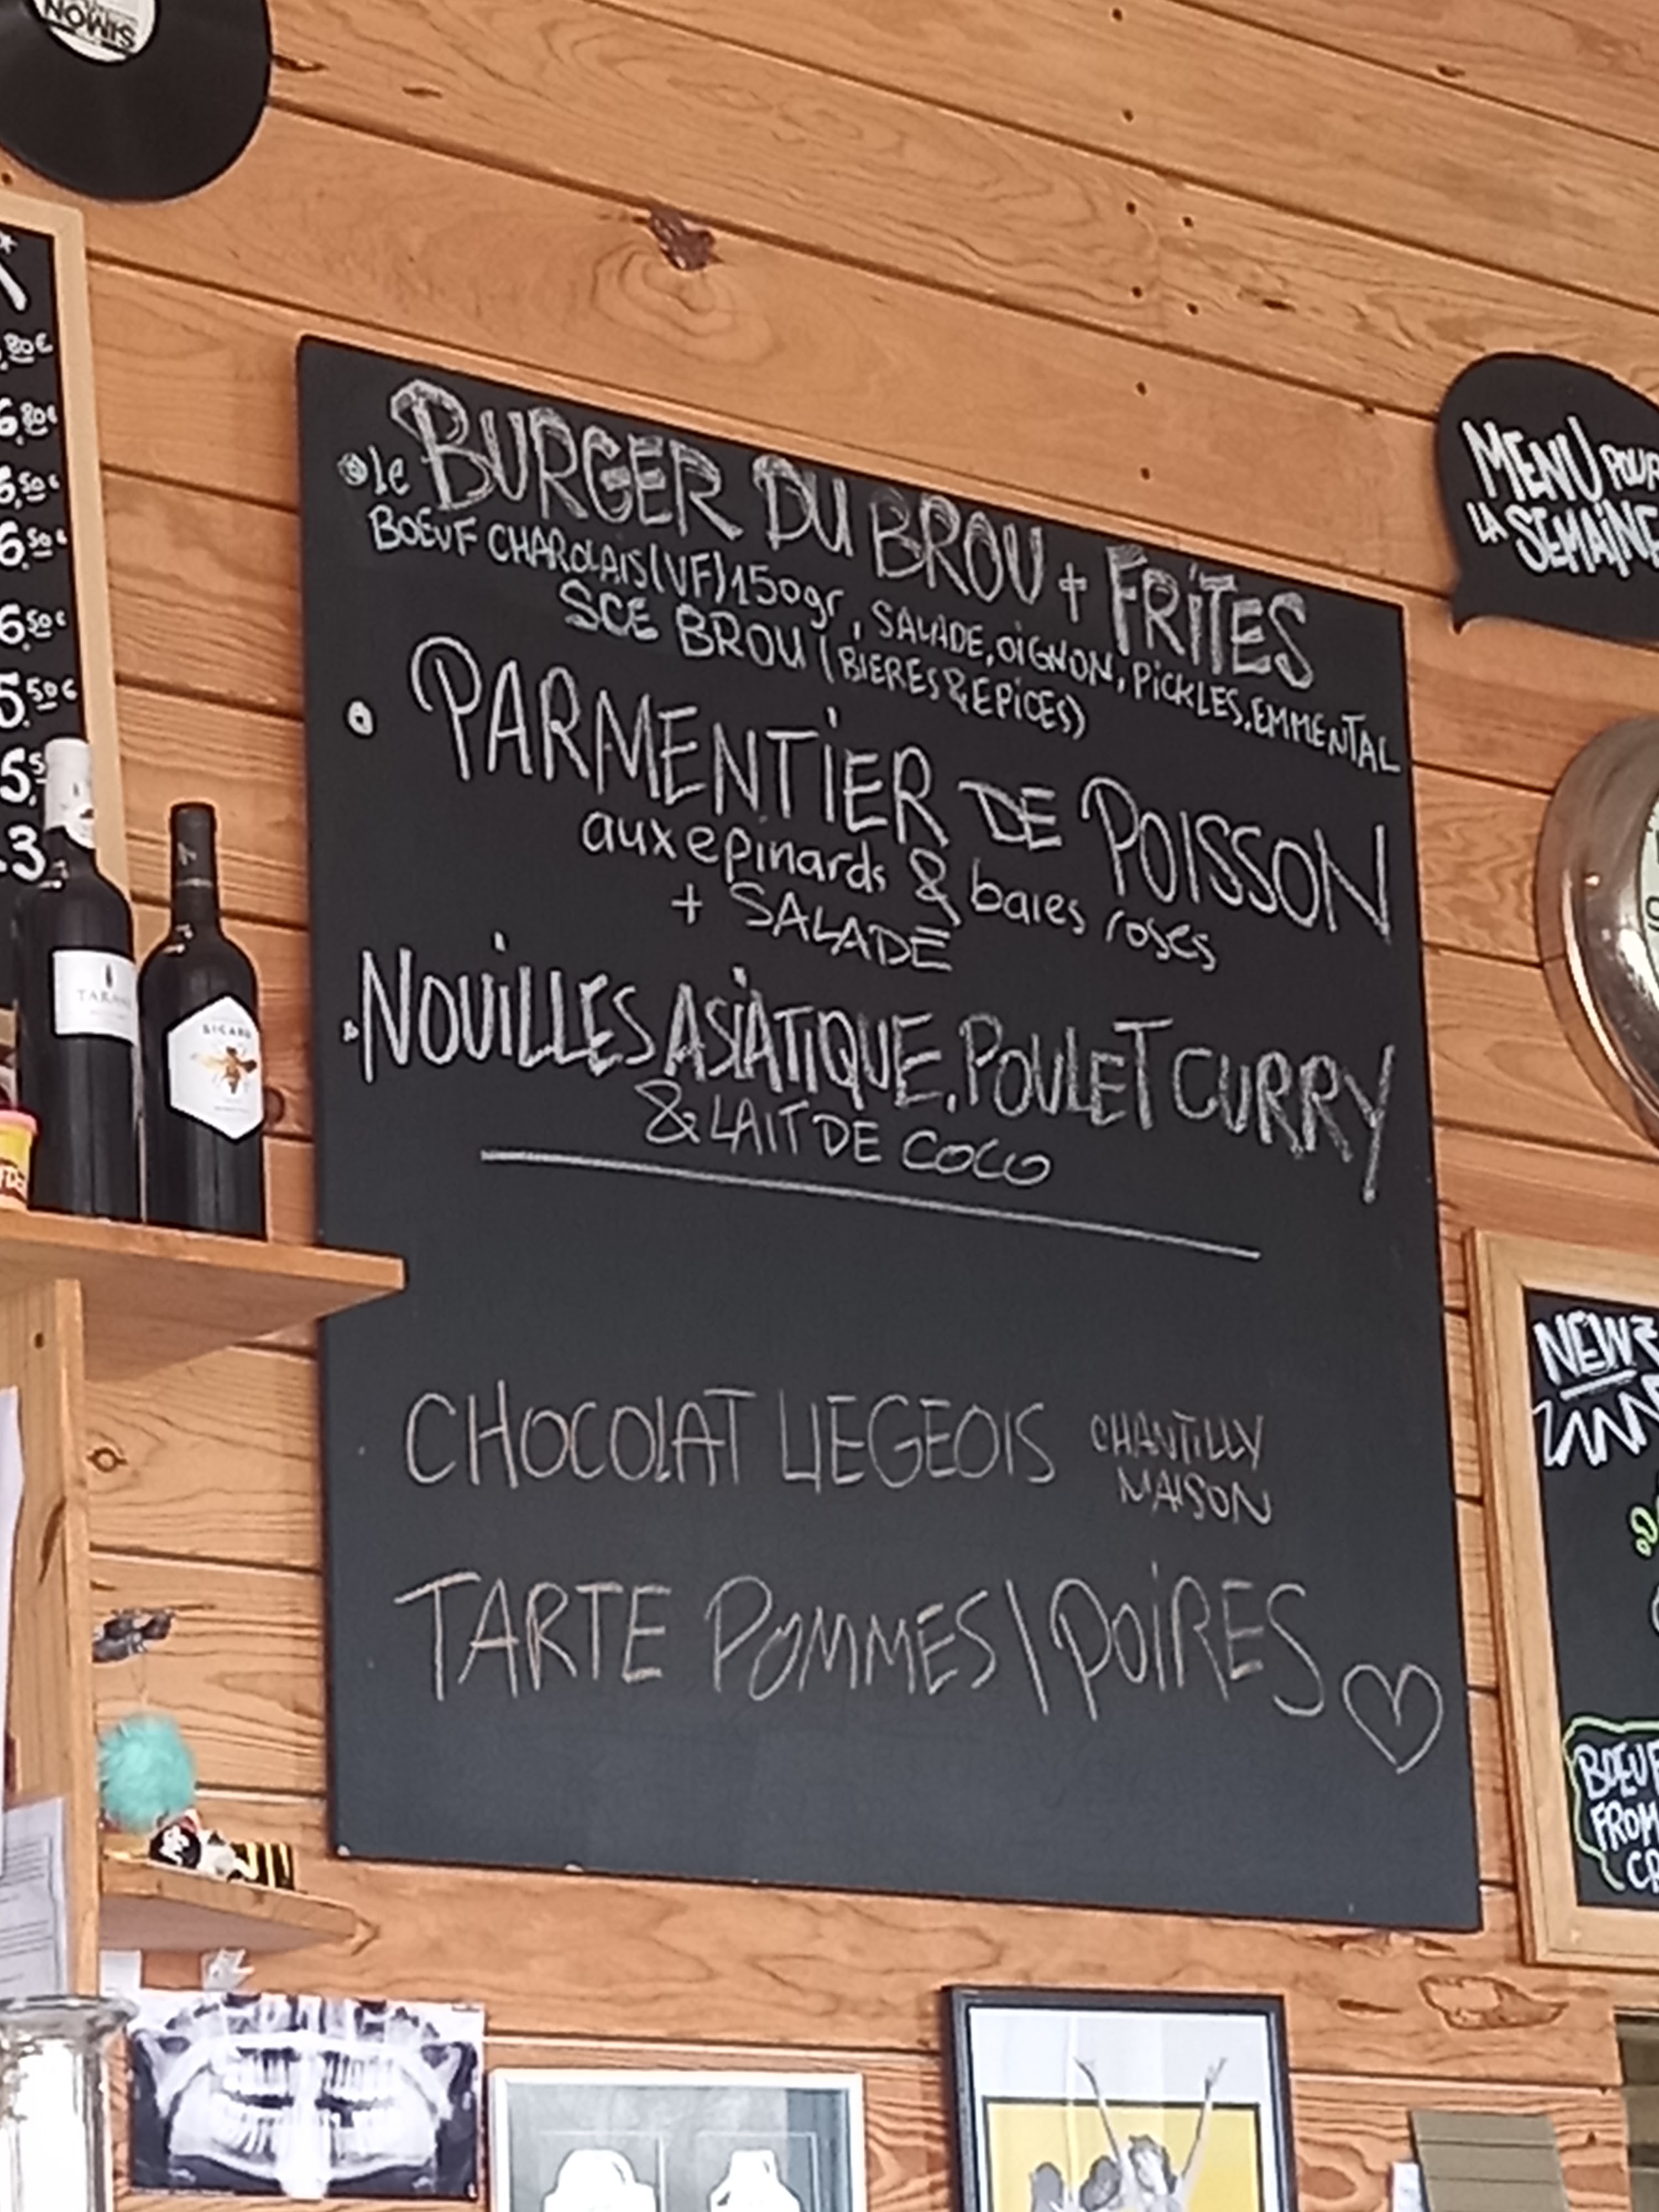 SIMON
80€
6,80€
6,50€
6,50€
6,50€
5,50€
5,5
3
le BURGER DU BROU + FRITES
BOEUF CHAROLAIS (VF) 150gr, SALADE, OIGNON, PICKLES, EMMENTAL
SCE BROU (BIERES & EPICES)
PARMENTIER DE POISSON
aux epinards & baies roses
+ SALADE
NOUILLES ASIATIQUE, POULET CURRY
& LAIT DE COCO
CHOCOLAT LIEGEOIS CHANTILLY
MAISON
TARTE POMMES \ POIRES
MENU POUR
LA SEMAINE
SICARD
NEW
BOEUF
FROM